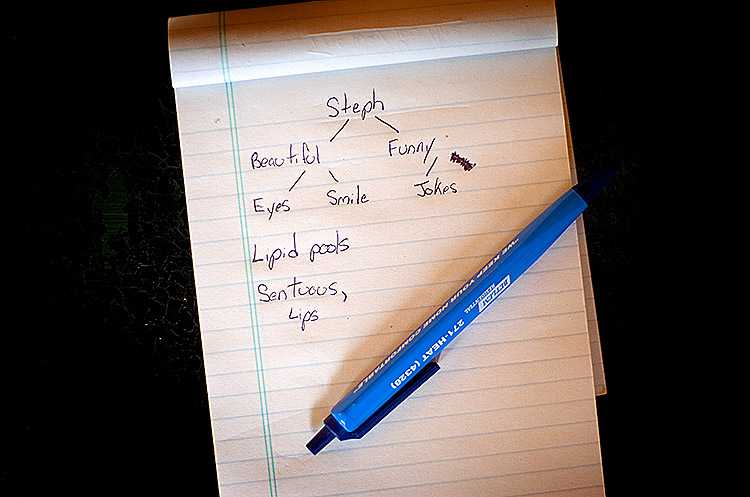 Steph
Beautiful Funny
Eyes Smile Jokes
Lipid pools
Sentuous,
Lips
"WE KEEP YOUR HOME COMFORTABLE"
271-HEAT (4328)